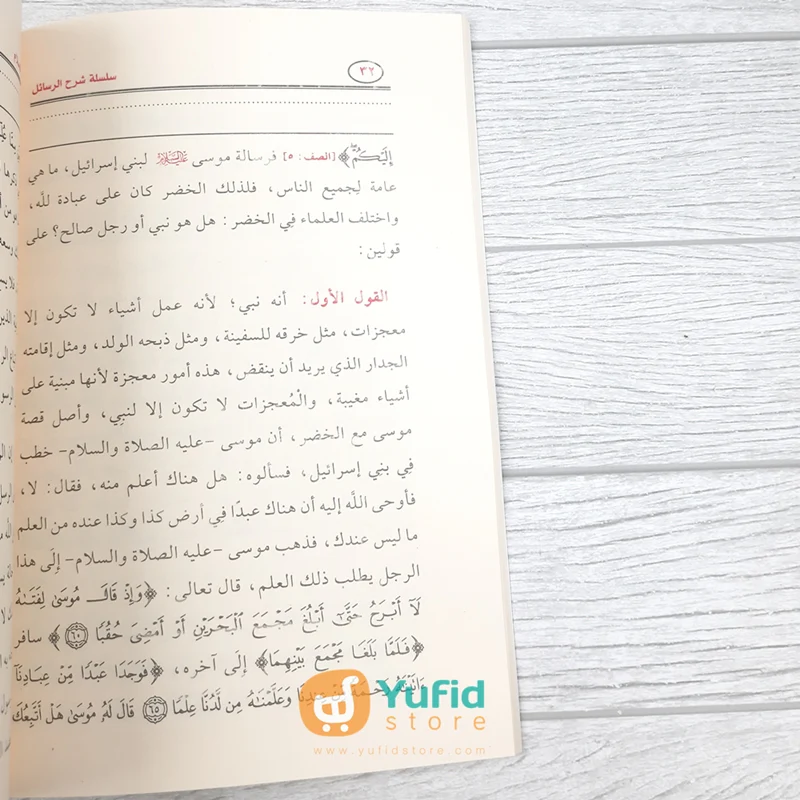 ٣٢
سلسلة شرح الرسائل
إِلَيْكُمْ﴾ [الصف: ٥] فرسالة موسى عليه السلام لبني إسرائيل، ما هي
عامة لجميع الناس، فلذلك الخضر كان على عبادة لله،
واختلف العلماء في الخضر: هل هو نبي أو رجل صالح؟ على
قولين:
القول الأول: أنه نبي؛ لأنه عمل أشياء لا تكون إلا
معجزات، مثل خرقه للسفينة، ومثل ذبحه الولد، ومثل إقامته
الجدار الذي يريد أن ينقض، هذه أمور معجزة لأنها مبنية على
أشياء مغيبة، والْمُعجزات لا تكون إلا لنبِي، وأصل قصة
موسى مع الخضر، أن موسى -عليه الصلاة والسلام- خطب
فِي بني إسرائيل، فسألوه: هل هناك أعلم منه، فقال: لا،
فأوحى اللَّه إليه أن هناك عبدًا فِي أرض كذا وكذا عنده من العلم
ما ليس عندك، فذهب موسى -عليه الصلاة والسلام- إلَى هذا
الرجل يطلب ذلك العلم، قال تعالى: ﴿وَإِذْ قَالَ مُوسَىٰ لِفَتَىٰهُ
لَآ أَبْرَحُ حَتَّىٰٓ أَبْلُغَ مَجْمَعَ ٱلْبَحْرَيْنِ أَوْ أَمْضِىَ حُقُبًا ﴿٦٠﴾﴾ سافر
﴿فَلَمَّا بَلَغَا مَجْمَعَ بَيْنِهِمَا﴾ إلَى آخره، ﴿فَوَجَدَا عَبْدًا مِّنْ عِبَادِنَآ
ءَانَيْنَٰهُ رَحْمَةً مِّنْ عِندِنَا وَعَلَّمْنَٰهُ مِن لَّدُنَّا عِلْمًا ﴿٦٥﴾ قَالَ لَهُۥ مُوسَىٰ هَلْ أَتَّبِعُكَ
Yufid
store
www.yufidstore.com